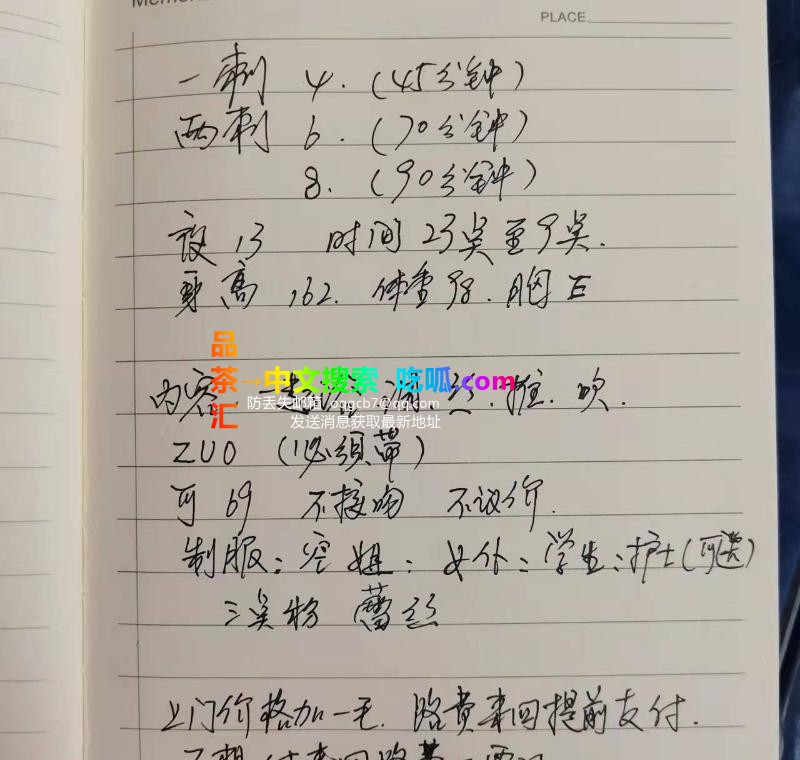 PLACE
一刺 4.(45分钟)
两刺 6.(70分钟)
8.(90分钟)
夜13 时间23点至9点.
身高162. 体重98. 胸E
品茶汇
中文搜索 吃呱.com
防丢失邮箱 oggcb7@qq.com
发送消息获取最新地址
内容: 丝.推.吹.
ZUO(必须带)
可69 不接吻 不议价.
制服:空姐:女仆:学生:护士(可选)
三点粉 蕾丝
上门价格加一毛.路费来回提前支付.